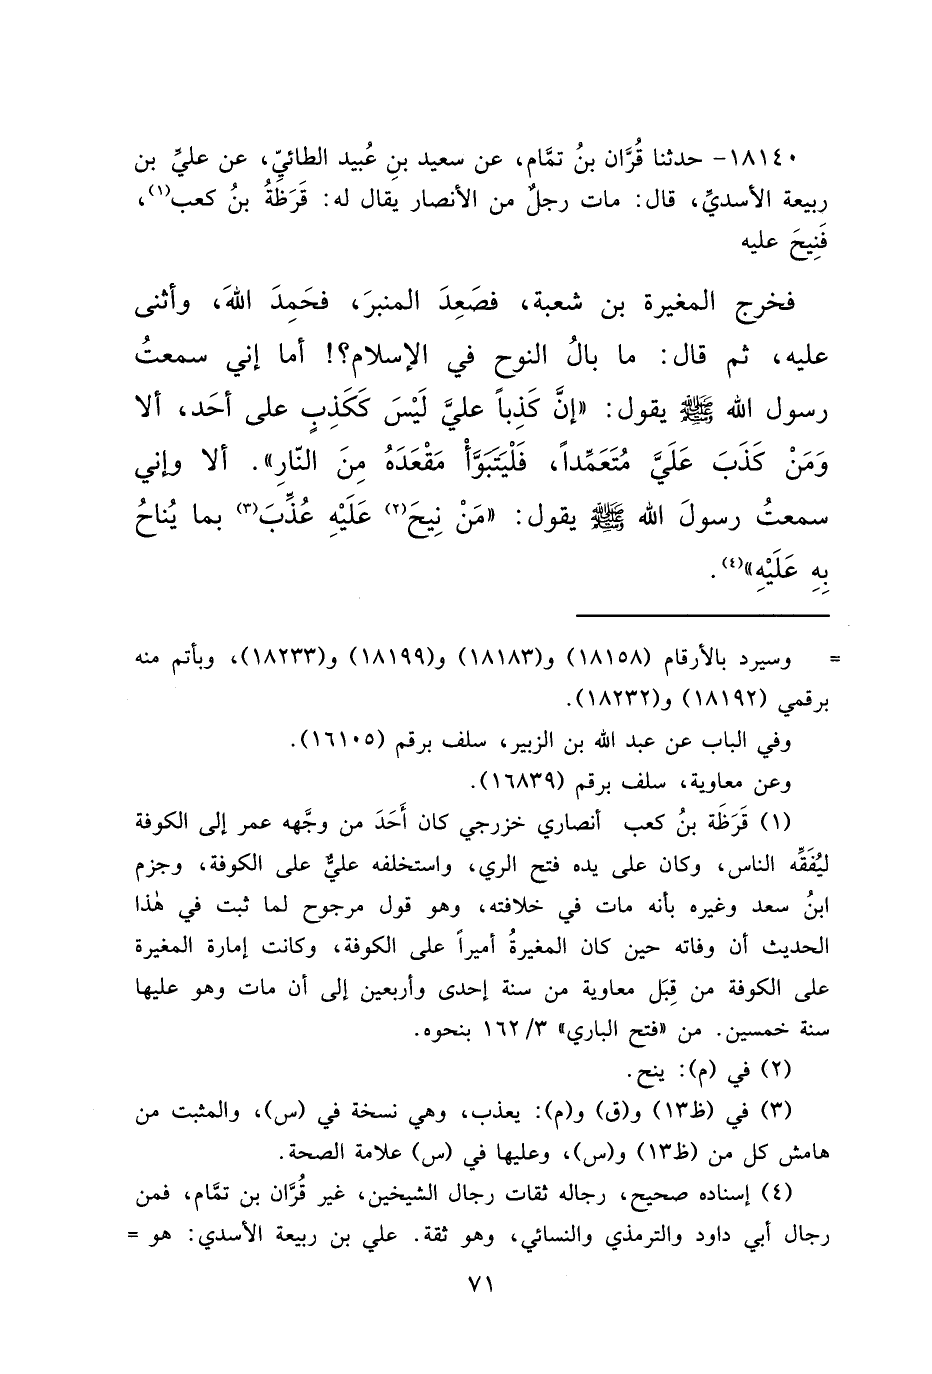 ١٨١٤٠- حدثنا قُرَّان بنُ تمَّام، عن سعيد بنِ عُبيد الطائيِّ، عن عليِّ بن
ربيعة الأسديِّ، قال: مات رجلٌ من الأنصار يقال له: قَرَظَةُ بنُ كعب(١)،
فَنِيحَ عليه
فخرج المغيرة بن شعبة، فصَعِدَ المنبرَ، فحَمِدَ اللهَ، وأثنى
عليه، ثم قال: ما بالُ النوح في الإسلام؟! أما إني سمعتُ
رسول الله ﷺ يقول: «إنَّ كَذِباً عليَّ لَيْسَ كَكَذِبٍ على أحَد، ألا
وَمَنْ كَذَبَ عَلَيَّ مُتَعَمِّداً، فَلْيَتَبَوَّأْ مَقْعَدَهُ مِنَ النّارِ». ألا وإني
سمعتُ رسولَ الله ﷺ يقول: «مَنْ نِيحَ(٢) عَلَيْهِ عُذِّبَ(٣) بما يُناحُ
بِهِ عَلَيْهِ»(٤).
= وسيرد بالأرقام (١٨١٥٨) و(١٨١٨٣) و(١٨١٩٩) و(١٨٢٣٣)، وبأتم منه
برقمي (١٨١٩٢) و(١٨٢٣٢).
وفي الباب عن عبد الله بن الزبير، سلف برقم (١٦١٠٥).
وعن معاوية، سلف برقم (١٦٨٣٩).
(١) قَرَظَة بنُ كعب أنصاري خزرجي كان أَحَدَ من وجَّهه عمر إلى الكوفة
ليُفَقِّه الناس، وكان على يده فتح الري، واستخلفه عليٌّ على الكوفة، وجزم
ابنُ سعد وغيره بأنه مات في خلافته، وهو قول مرجوح لما ثبت في هٰذا
الحديث أن وفاته حين كان المغيرةُ أميراً على الكوفة، وكانت إمارة المغيرة
على الكوفة من قِبَل معاوية من سنة إحدى وأربعين إلى أن مات وهو عليها
سنة خمسين. من «فتح الباري» ٣/ ١٦٢ بنحوه.
(٢) في (م): ينح.
(٣) في (ظ١٣) و(ق) و(م): يعذب، وهي نسخة في (س)، والمثبت من
هامش كل من (ظ١٣) و(س)، وعليها في (س) علامة الصحة.
(٤) إسناده صحيح، رجاله ثقات رجال الشيخين، غير قُرَّان بن تمَّام، فمن
رجال أبي داود والترمذي والنسائي، وهو ثقة. علي بن ربيعة الأسدي: هو =
٧١